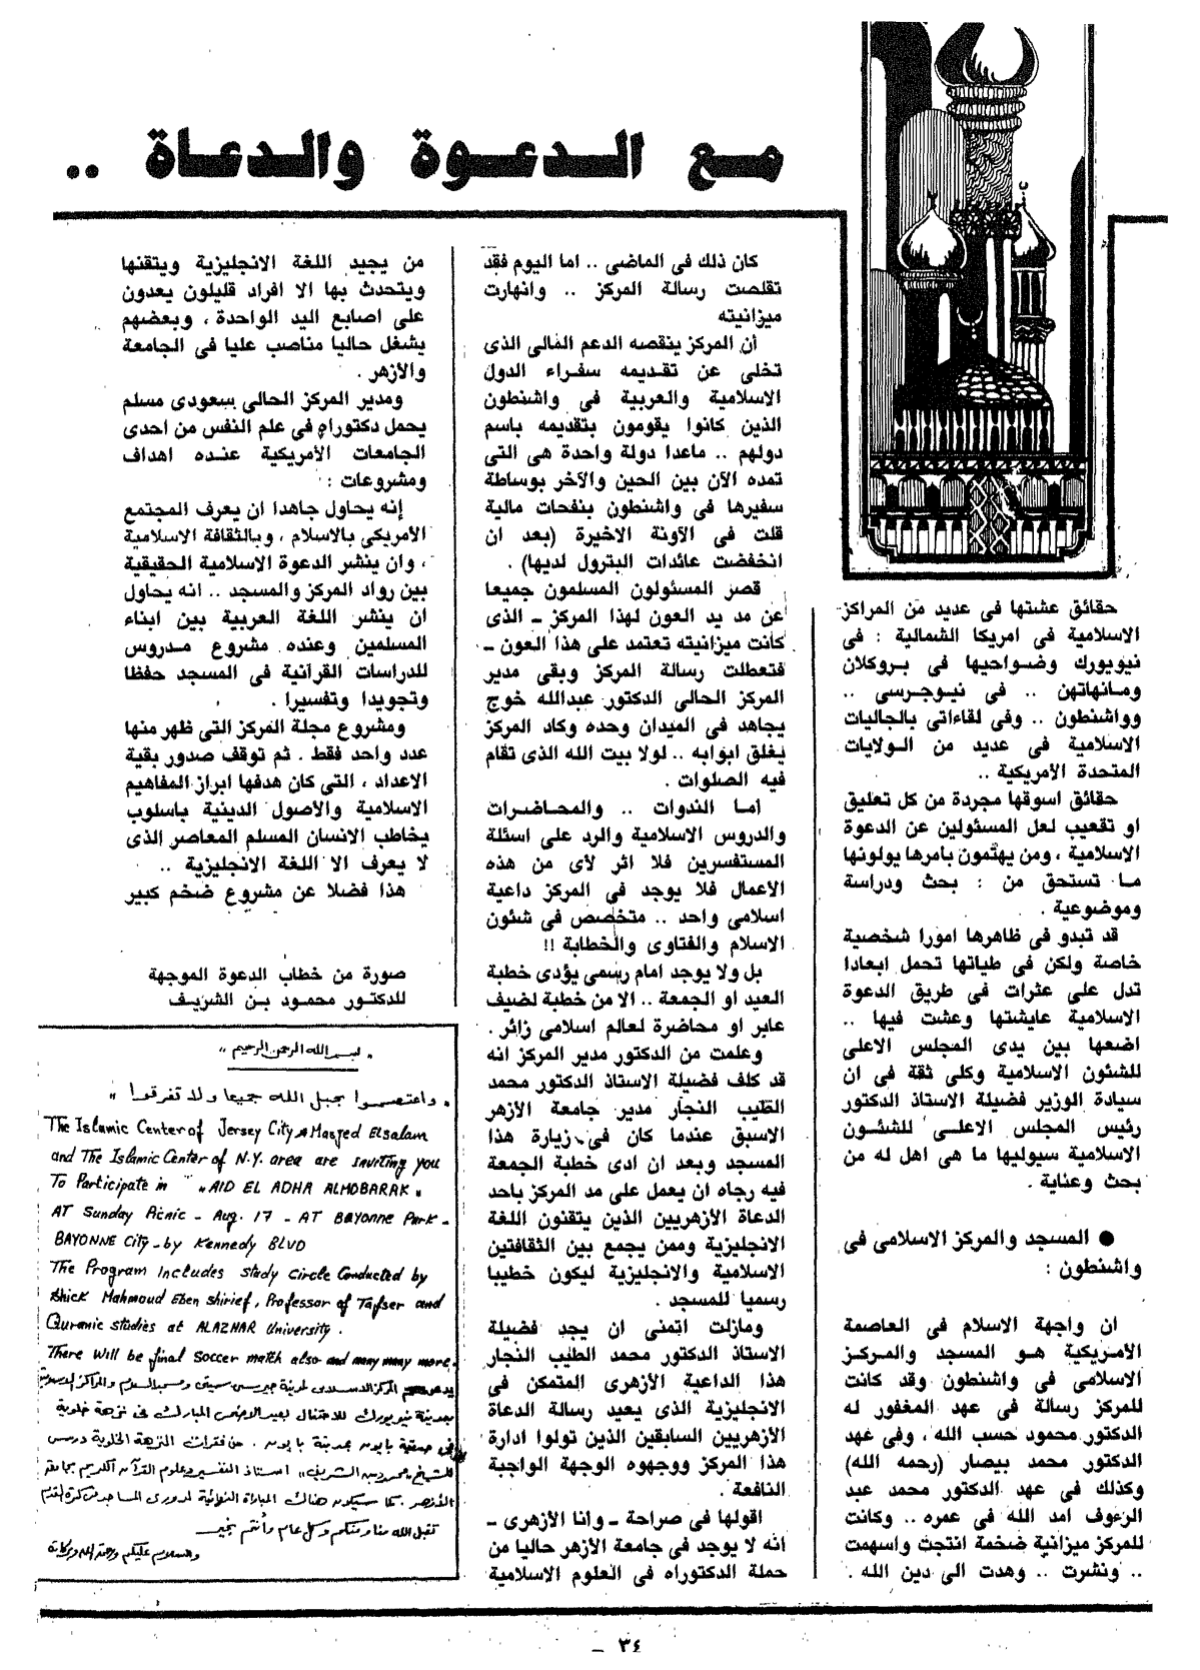 مـع الـدعـوة والـدعـاة ..
حقائق عشتها فى عديد من المراكز
الاسلامية فى امريكا الشمالية : فى
نيويورك وضواحيها فى بروكلان
ومانهاتهن .. فى نيوجرسى ..
وواشنطون .. وفى لقاءاتى بالجاليات
الاسلامية فى عديد من الولايات
المتحدة الأمريكية ..
حقائق اسوقها مجردة من كل تعليق
او تعقيب لعل المسئولين عن الدعوة
الاسلامية ، ومن يهتمون بامرها يولونها
ما تستحق من : بحث ودراسة
وموضوعية .
قد تبدو فى ظاهرها امورا شخصية
خاصة ولكن فى طياتها تحمل ابعادا
تدل على عثرات فى طريق الدعوة
الاسلامية عايشتها وعشت فيها ..
اضعها بين يدى المجلس الاعلى
للشئون الاسلامية وكلى ثقة فى ان
سيادة الوزير فضيلة الاستاذ الدكتور
رئيس المجلس الاعلى للشئون
الاسلامية سيوليها ما هى اهل له من
بحث وعناية .
● المسجد والمركز الاسلامى فى
واشنطون :
ان واجهة الاسلام فى العاصمة
الأمريكية هو المسجد والمركز
الاسلامى فى واشنطون وقد كانت
للمركز رسالة فى عهد المغفور له
الدكتور محمود حسب الله ، وفى عهد
الدكتور محمد بيصار (رحمه الله)
وكذلك فى عهد الدكتور محمد عبد
الرءوف امد الله فى عمره .. وكانت
للمركز ميزانية ضخمة انتجت واسهمت
.. ونشرت .. وهدت الى دين الله .
كان ذلك فى الماضى .. اما اليوم فقد
تقلصت رسالة المركز .. وانهارت
ميزانيته
أن المركز ينقصه الدعم المالى الذى
تخلى عن تقديمه سفراء الدول
الاسلامية والعربية فى واشنطون
الذين كانوا يقومون بتقديمه باسم
دولهم .. ماعدا دولة واحدة هى التى
تمده الآن بين الحين والآخر بوساطة
سفيرها فى واشنطون بنفحات مالية
قلت فى الآونة الاخيرة (بعد ان
انخفضت عائدات البترول لديها) .
قصر المسئولون المسلمون جميعا
عن مد يد العون لهذا المركز ـ الذى
كانت ميزانيته تعتمد على هذا العون ـ
فتعطلت رسالة المركز وبقى مدير
المركز الحالى الدكتور عبدالله خوج
يجاهد فى الميدان وحده وكاد المركز
يغلق ابوابه .. لولا بيت الله الذى تقام
فيه الصلوات .
اما الندوات .. والمحاضرات
والدروس الاسلامية والرد على اسئلة
المستفسرين فلا اثر لأى من هذه
الاعمال فلا يوجد فى المركز داعية
اسلامى واحد .. متخصص فى شئون
الاسلام والفتاوى والخطابة !!
بل ولا يوجد امام رسمى يؤدى خطبة
العيد او الجمعة .. الا من خطبة لضيف
عابر او محاضرة لعالم اسلامى زائر .
وعلمت من الدكتور مدير المركز انه
قد كلف فضيلة الاستاذ الدكتور محمد
الطيب النجار مدير جامعة الأزهر
الاسبق عندما كان فى زيارة هذا
المسجد وبعد ان ادى خطبة الجمعة
فيه رجاه ان يعمل على مد المركز باحد
الدعاة الأزهريين الذين يتقنون اللغة
الانجليزية وممن يجمع بين الثقافتين
الاسلامية والانجليزية ليكون خطيبا
رسميا للمسجد .
ومازلت اتمنى ان يجد فضيلة
الاستاذ الدكتور محمد الطيب النجار
هذا الداعية الأزهرى المتمكن فى
الانجليزية الذى يعيد رسالة الدعاة
الأزهريين السابقين الذين تولوا ادارة
هذا المركز ووجهوه الوجهة الواجبة
النافعة .
اقولها فى صراحة ـ وانا الأزهرى ـ
أنه لا يوجد فى جامعة الأزهر حاليا من
حملة الدكتوراه فى العلوم الاسلامية
من يجيد اللغة الانجليزية ويتقنها
ويتحدث بها الا افراد قليلون يعدون
على اصابع اليد الواحدة ، وبعضهم
يشغل حاليا مناصب عليا فى الجامعة
والأزهر .
ومدير المركز الحالى سعودى مسلم
يحمل دكتوراه فى علم النفس من احدى
الجامعات الأمريكية عنده اهداف
ومشروعات :
إنه يحاول جاهدا ان يعرف المجتمع
الأمريكى بالاسلام ، وبالثقافة الاسلامية
، وان ينشر الدعوة الاسلامية الحقيقية
بين رواد المركز والمسجد .. انه يحاول
ان ينشر اللغة العربية بين ابناء
المسلمين وعنده مشروع مدروس
للدراسات القرآنية فى المسجد حفظا
وتجويدا وتفسيرا .
ومشروع مجلة المركز التى ظهر منها
عدد واحد فقط . ثم توقف صدور بقية
الاعداد ، التى كان هدفها ابراز المفاهيم
الاسلامية والاصول الدينية باسلوب
يخاطب الانسان المسلم المعاصر الذى
لا يعرف الا اللغة الانجليزية ..
هذا فضلا عن مشروع ضخم كبير
صورة من خطاب الدعوة الموجهة
للدكتور محمود بن الشريف
" بسم الله الرحمن الرحيم "
" واعتصموا بحبل الله جميعا ولا تفرقوا "
The Islamic Center of Jersey City & Masjed Elsalam
and The Islamic Center of N.Y. area are inviting you
To Participate in "AID EL ADHA ALMOBARAK"
AT Sunday Picnic - Aug. 17 - AT Bayonne Park -
BAYONNE City - by Kennedy BLVD
The Program includes study circle Conducted by
Shick Mahmoud Eben Shirief, Professor of Tafser and
Quranic studies at ALAZHAR University.
There will be final soccer match also and many many more.
يدعوكم المركز الاسلامى لمدينة جيرسى سيتى ومسجد السلام والمراكز الاسلامية
بمدينة نيويورك للاحتفال بعيد الاضحى المبارك فى نزهة خلوية
فى حديقة بايون بمدينة بايون . من فقرات النزهة الخلوية درس
للشيخ محمود بن الشريف استاذ التفسير وعلوم القرآن الكريم بجامعة
الأزهر . كما سيكون هناك المباراة النهائية لدورى المساجد فى كرة القدم
تقبل الله منا ومنكم وكل عام وأنتم بخير
والسلام عليكم ورحمة الله وبركاته
٣٤ ـ